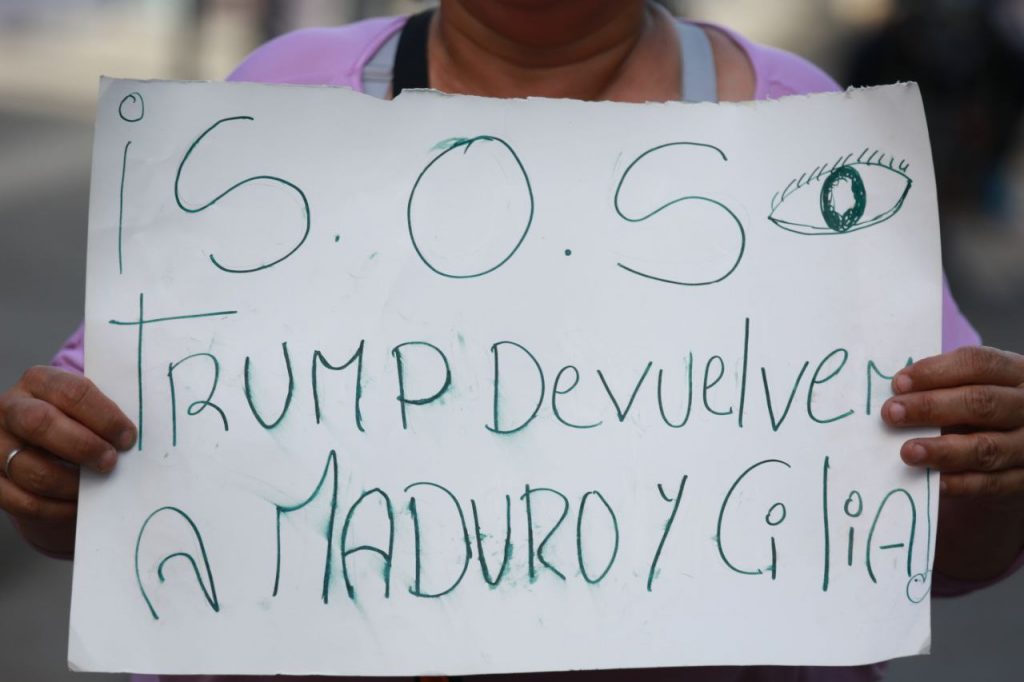 ¡S.O.S
TRUMP Devuelven
A MADURO Y CiliA!